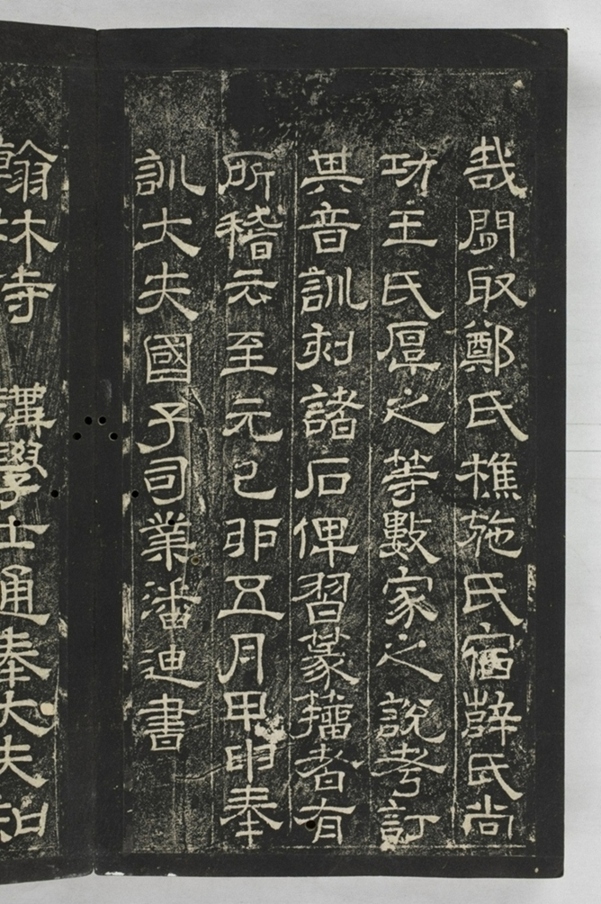 哉間取鄭氏樵施氏宿薛氏尚
功王氏厚之等數家之說考訂
其音訓刻諸石俾習篆籀者有
所稽云至元己卯五月甲申奉
訓大夫國子司業潘迪書
翰林侍講學士通奉大夫知